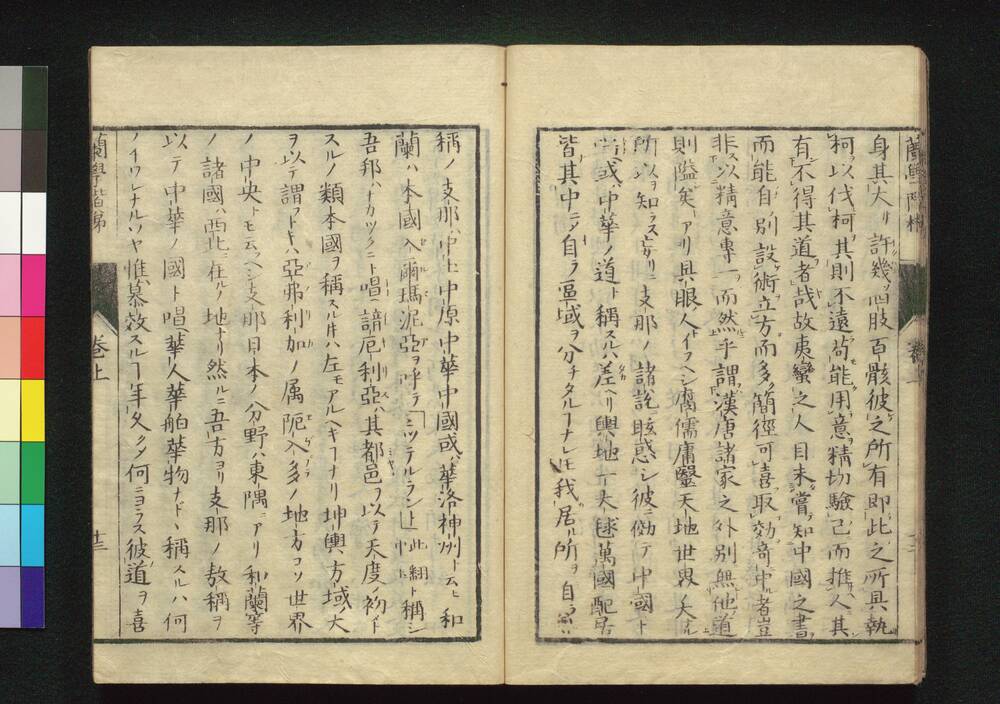 蘭學階梯
卷上
十二
身其大ナリ許幾ソ四肢百骸彼之所有即此之所具執
柯以伐柯其則不遠苟能用意精切驗己而推人其
有不得其道者哉故夷蠻之人目未嘗知中國之書
而能自別設術立方而多簡徑可喜取効奇中者豈
非以精意專一而然乎謂漢唐諸家之外別無他道
則隘矣トアリ具眼人トイフヘシ腐儒庸醫天地世界ノ大ナル
所以ヲ知ラス妄リニ支那ノ諸說ニ眩惑シ彼ニ効テ中國ト
或ハ中華ノ道ト稱スルハ差ヘリ輿地ハ一大毬萬國配居
皆其中ニテ自ラ區域ヲ分チタルコナレ𪜈我居ル所ヲ自ラ
稱ノ支那ハ中土中原中華中國或ハ華洛神州ト云ヒ和
蘭ハ本國入爾瑪泥亞ヲ呼テ「ミツテルランシ此翻中土ト稱シ
吾邦ハナカツクニト唱ヘ諳厄利亞ハ其都邑ヲ以テ天度ノ初メト
スルノ類本國ヲ稱スル𪜈ハ左モアルヘキコナリ坤輿方域ノ大
ヲ以テ謂フトキハ亞弗利加ノ属阨入多ノ地方コソ世界
ノ中央トモ云ヘシ支那日本ノ分野ハ東隅ニアリ和蘭等
ノ諸國ハ西北ニ在ルノ地ナリ然ルニ吾方ヨリ支那ノ敖稱ヲ
以テ中華ノ國ト唱ヘ華人華舶華物ナド丶稱スルハ何
ノイワレナルソヤ惟慕效スルコ年久クシ何ニヨラス彼道ヲ喜
蘭學階梯
卷上
十三